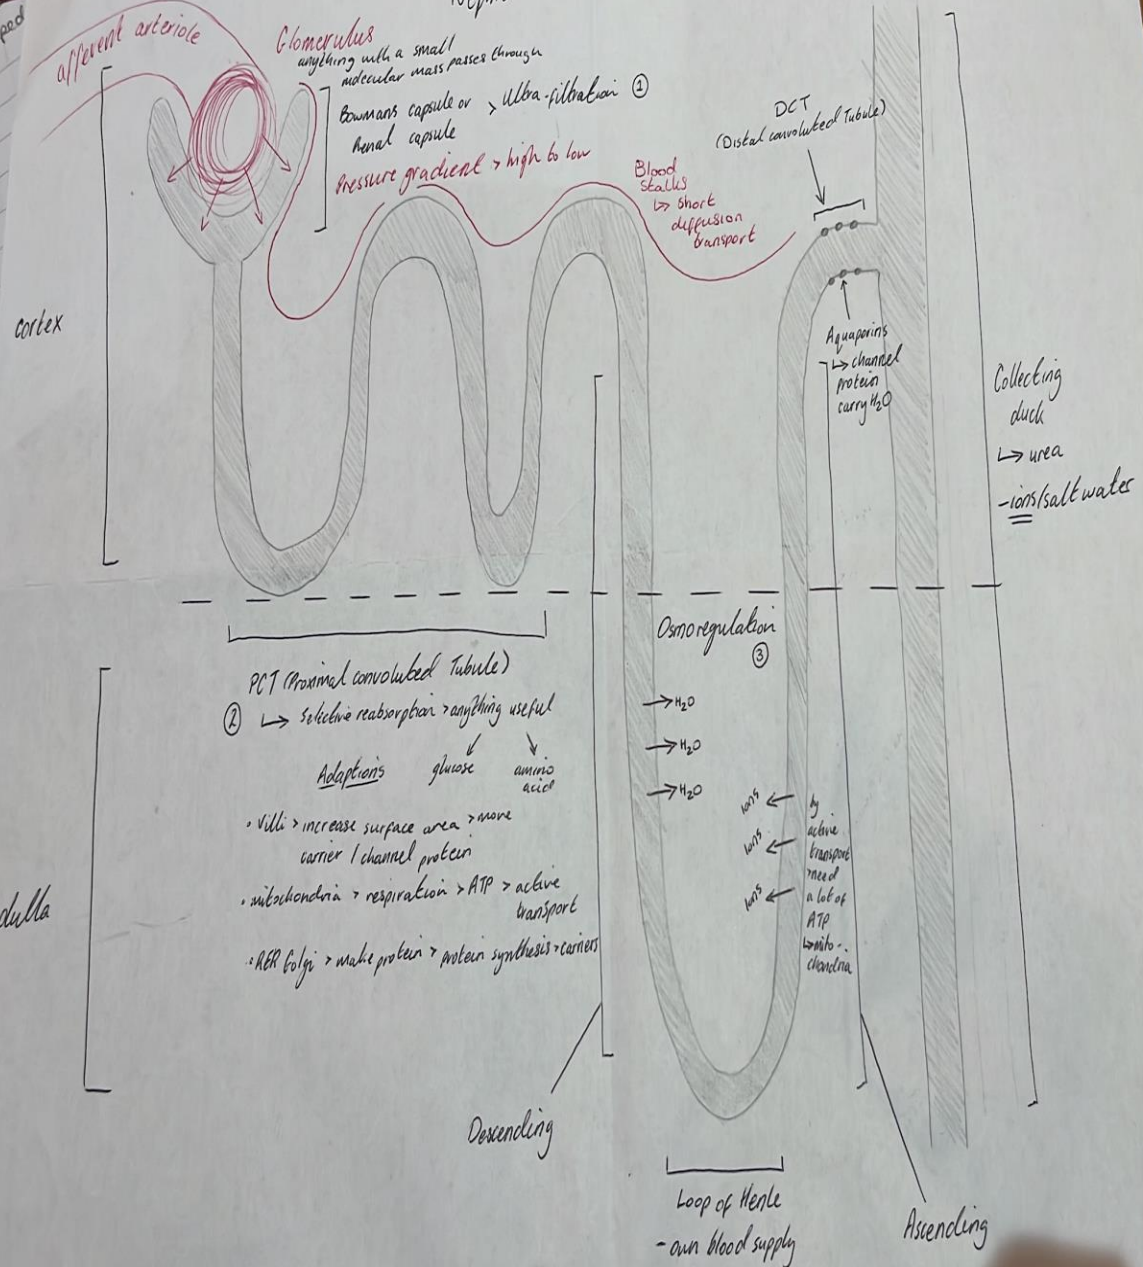 afferent arteriole
Glomerulus
anything with a small
molecular mass passes through
Bowmans capsule or > Ultra-filtration ①
Renal capsule
Pressure gradient > high to low
Blood
Stalks
↳ short
diffusion
transport
DCT
(Distal convoluted Tubule)
cortex
Aquaporins
↳ channel
protein
carry H₂O
Collecting
duck
↳ urea
- ions/salt water
Osmoregulation
③
PCT (Proximal convoluted Tubule)
② ↳ Selective reabsorption > anything useful
Adaptions glucose amino
acid
• Villi > increase surface area > more
carrier / channel protein
• mitochondria > respiration > ATP > active
transport
• RER Golgi > make protein > protein synthesis > carriers
→ H₂O
→ H₂O
→ H₂O
Ions ←
Ions ←
Ions ←
by
active
transport
>need
a lot of
ATP
↳ mito-
chondria
dulla
Descending
Loop of Henle
- own blood supply
Ascending